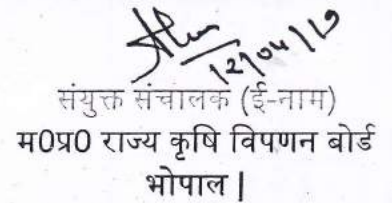 12/04/19
संयुक्त संचालक (ई-नाम)
म0प्र0 राज्य कृषि विपणन बोर्ड
भोपाल |